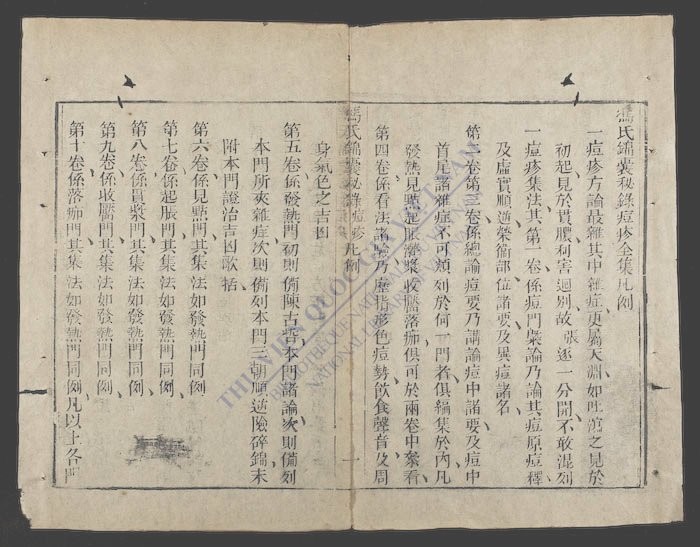 馮氏錦囊秘錄痘疹全集凡例
一痘疹方論最雜其中雜症更屬天淵如吐瀉之見於
初起見於貫膿利害迥別故張逐一分開不敢混列
一痘疹集法其第一卷係痘門彙論乃論其痘原痘釋
及虛實順逆榮衛部位諸要及異痘諸名
第二卷第三卷係總論痘要乃講論痘中諸要及痘中
首尾諸雜症不可類列於何一門者俱編集於內凡
發熱見點起脹灌漿收靨落痂俱可於兩卷中叅看
第四卷係看法諸論乃虛指形色痘勢飲食聲音及周
馮氏錦囊秘錄痘疹凡例
身氣色之吉凶
第五卷係發熱門初則備陳古哲本門諸論次則備列
本門所夾雜症次則備列本門三朝順逆險碎錦末
附本門證治吉凶歌括
第六卷係見點門其集法如發熱門同例
第七卷係起脹門其集法如發熱門同例
第八卷係貫漿門其集法如發熱門同例
第九卷係收靨門其集法如發熱門同例
第十卷係落痂門其集法如發熱門同例凡以上各門
THƯ VIỆN QUỐC GIA VIỆT NAM
BIBLIOTHÈQUE NATIONALE DU VIETNAM
NATIONAL LIBRARY OF VIETNAM